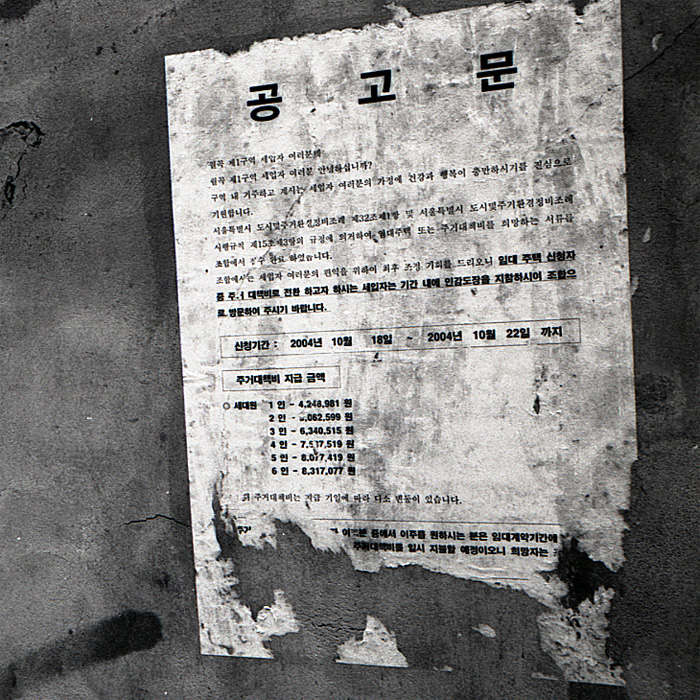 공 고 문
월곡 제1구역 세입자 여러분께
월곡 제1구역 세입자 여러분 안녕하십니까?
구역 내 거주하고 계시는 세입자 여러분의 가정에 건강과 행복이 충만하시기를 진심으로
기원합니다.
서울특별시 도시및주거환경정비조례 제32조제1항 및 서울특별시 도시및주거환경정비조례
시행규칙 제15조제3항의 규정에 의거하여, 임대주택 또는 주거대책비를 희망하는 서류를
조합에서 접수 완료 하였습니다.
조합에서는 세입자 여러분의 편익을 위하여 최후 조정 기회를 드리오니 임대 주택 신청자
중 주거 대책비로 전환 하고자 하시는 세입자는 기간 내에 인감도장을 지참하시어 조합으
로 방문하여 주시기 바랍니다.
신청기간 : 2004년 10월 18일 ~ 2004년 10월 22일 까지
주거대책비 지급 금액
○ 세대원 1 인 - 4,248,981 원
2 인 - 062,599 원
3 인 - 6,340,515 원
4 인 - 7,517,519 원
5 인 - 8,077,419 원
6 인 - 8,317,077 원
주거대책비는 지급 기일에 따라 다소 변동이 있습니다.
중에서 이주를 원하시는 분은 임대계약기간에
주거대책비를 일시 지불할 예정이오니 희망자는